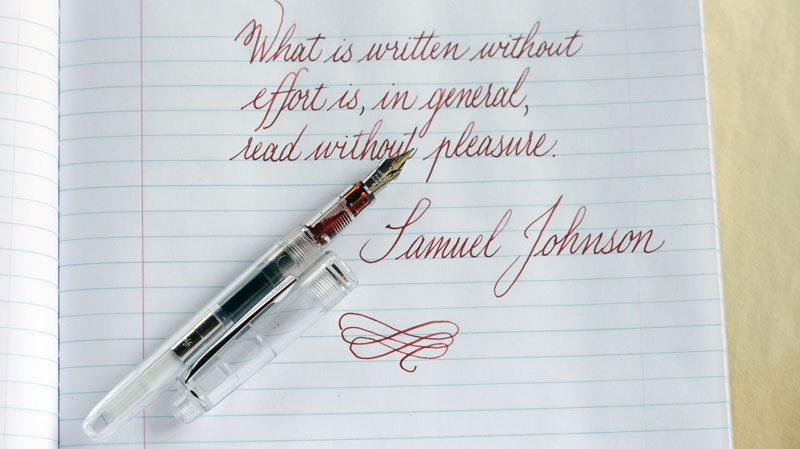 What is written without
effort is, in general,
read without pleasure.
Samuel Johnson